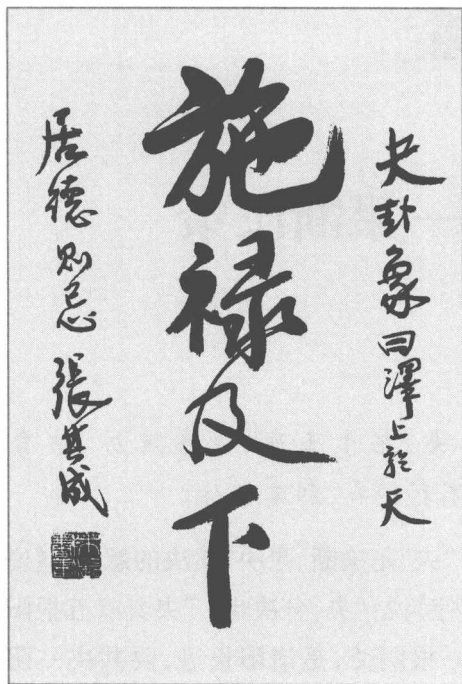 夬卦象曰澤上於天
施禄及下
居德则忌 張其成